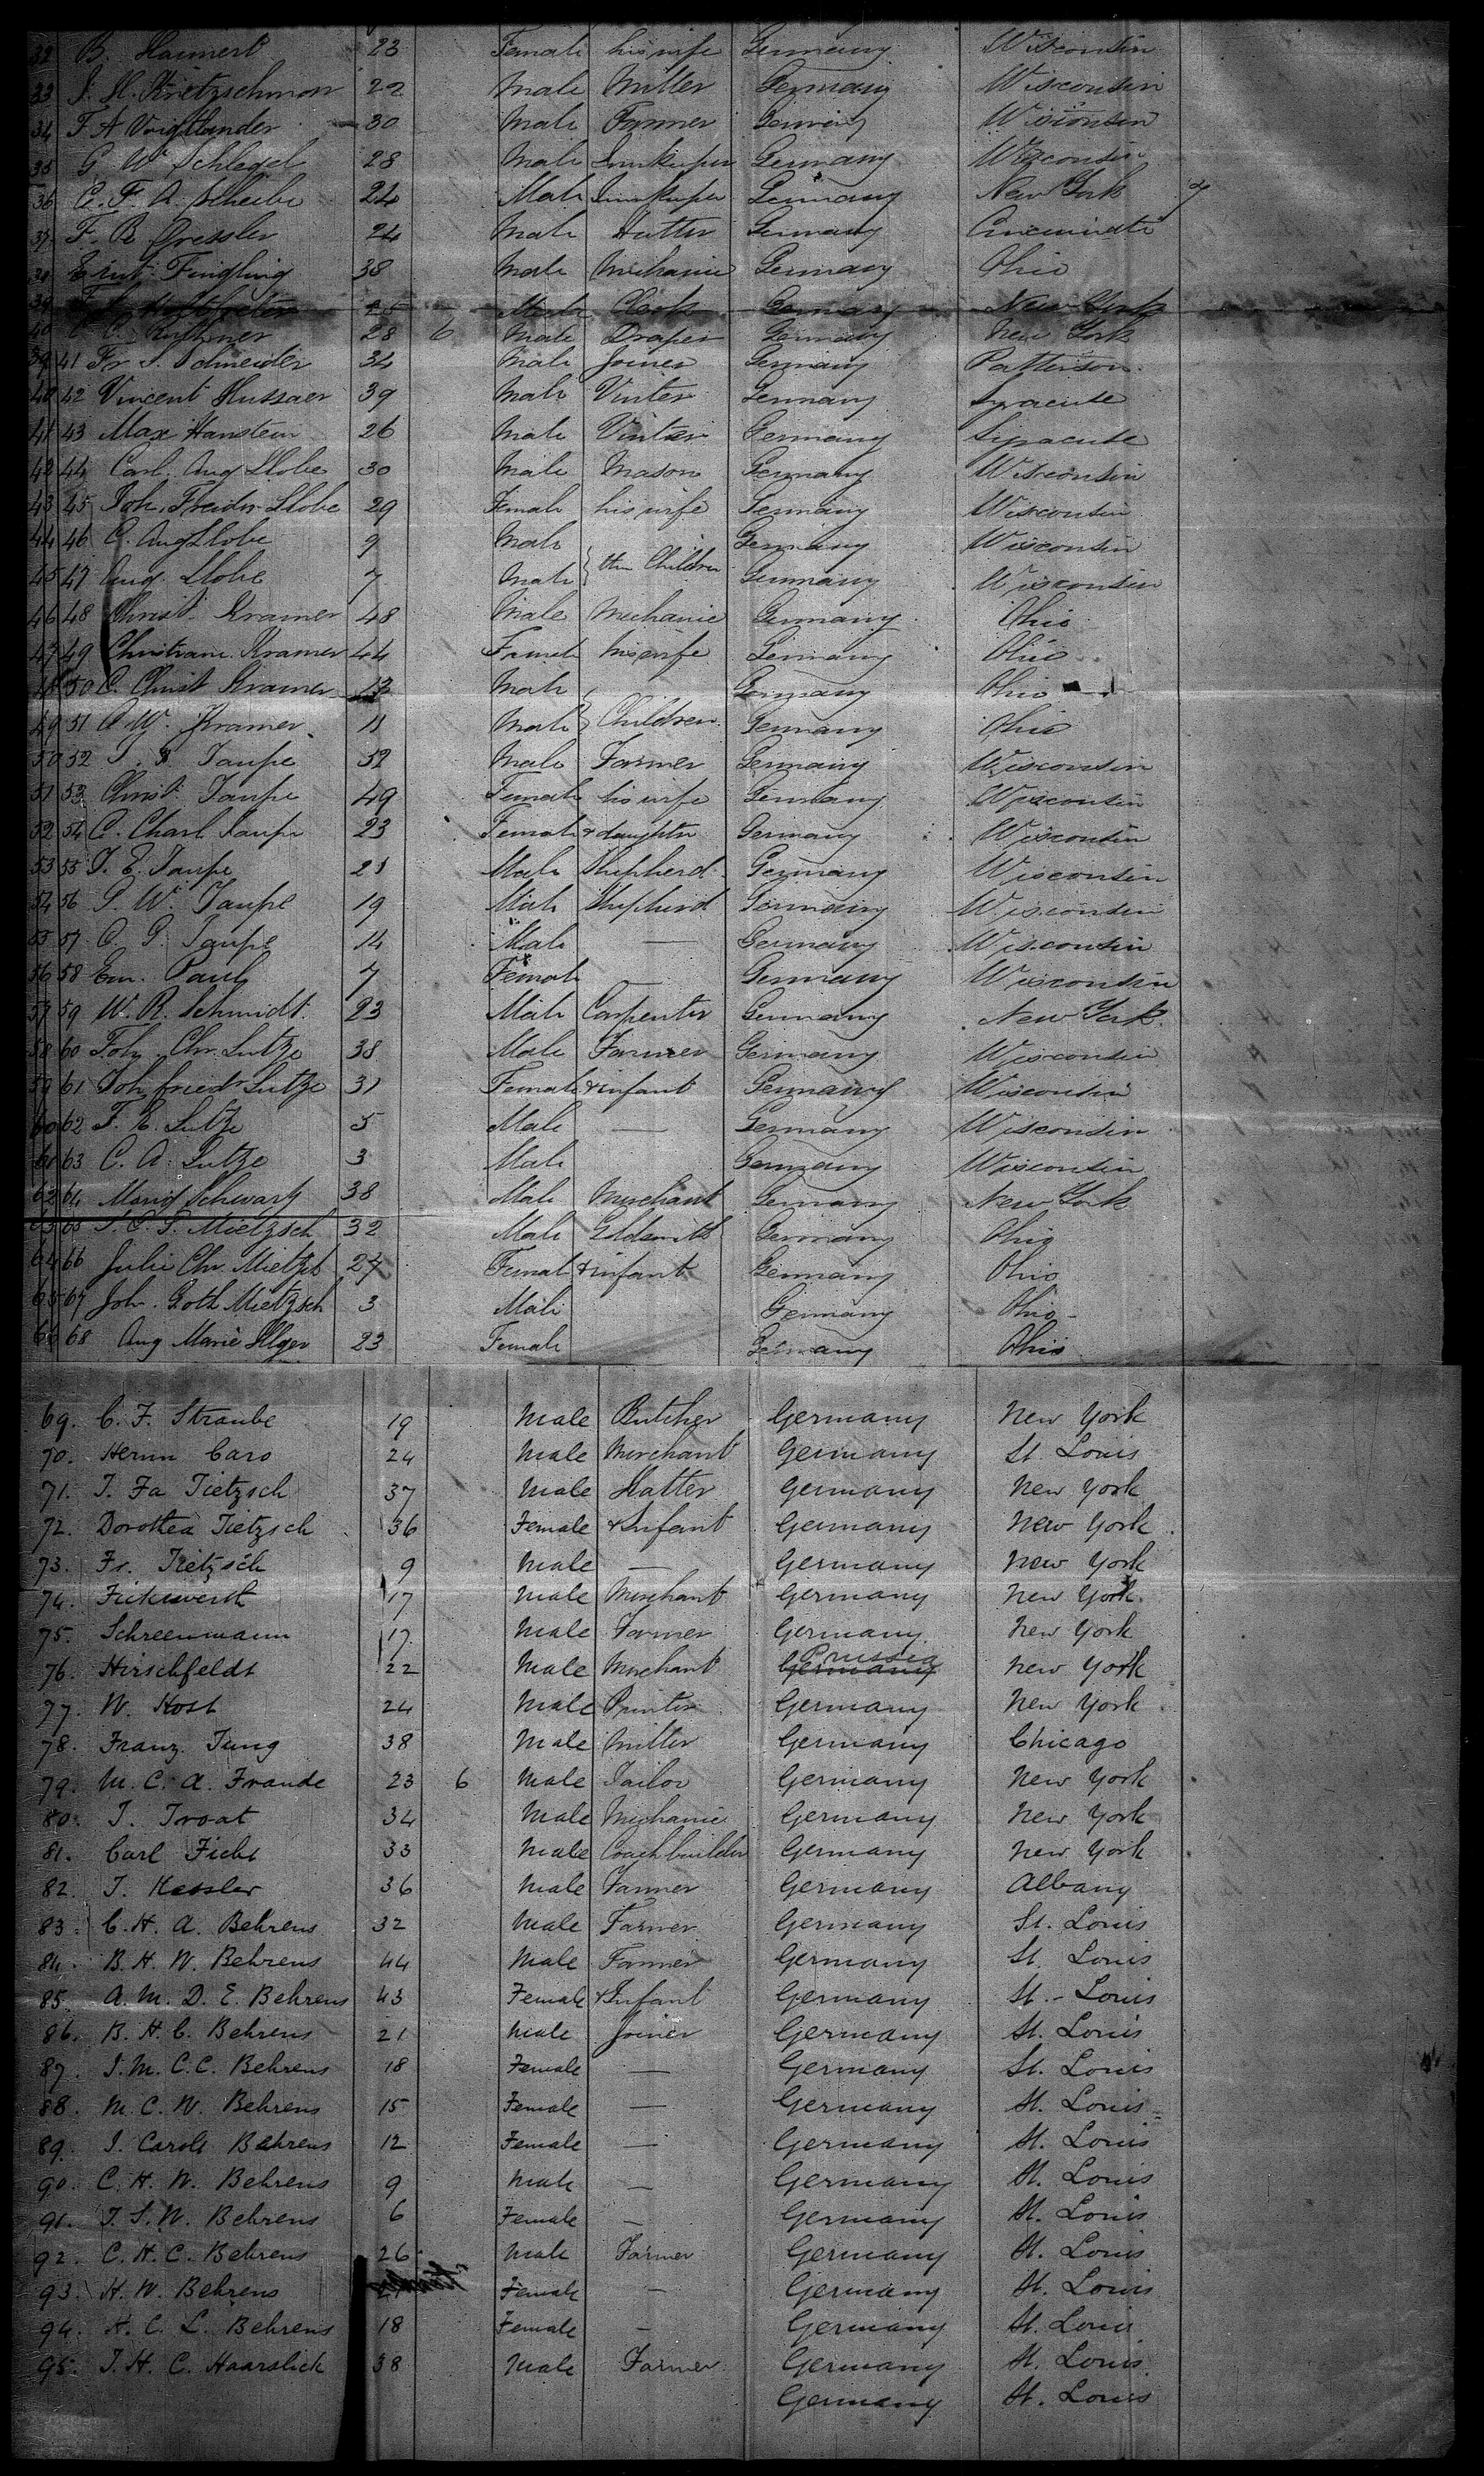 32 B. Haunert 23 Female his wife Germany Wisconsin
33 J. H. Krietzschmon 22 Male Miller Germany Wisconsin
34 F A Voigtlander 30 Male Farmer Germany Wisconsin
35 G. W Schlegel 28 Male Innkeeper Germany Wisconsin
36 C. F. A. Scheibe 24 Male Innkeeper Germany New York
37 F. R. Gressler 24 Male Hatter Germany Cincinnati
38 Findling 38 Male Mechanic Germany Ohio
39 Male Clerk Germany New York
40 C. 28 6 Male Draper Germany New York
39 41 Fr. S. Schneider 34 Male Joiner Germany Patterson
40 42 Vincent Hussaer 39 Male Vinter Germany Syracuse
41 43 Max Hanstein 26 Male Vinter Germany Syracuse
42 44 Carl. Aug Llobe 30 Male Mason Germany Wisconsin
43 45 Joh. Freidr. Llobe 29 Female his wife Germany Wisconsin
44 46 C. Aug Llobe 9 Male Germany Wisconsin
thr Children
45 47 Aug. Llobe 7 Male Germany Wisconsin
46 48 Christ. Kramer 48 Male Mechanic Germany Ohio
47 49 Christiane. Kramer 44 Female his wife Germany Ohio
48 50 C. Christ Kramer 13 Male Germany Ohio
Children
49 51 A. W. Kramer 11 Male Germany Ohio
50 52 J. Taupe 52 Male Farmer Germany Wisconsin
51 53 Christ. Taupe 49 Female his wife Germany Wisconsin
52 54 C. Charl Taupe 23 Female + daughter Germany Wisconsin
53 55 J. E. Taupe 21 Male Shepherd Germany Wisconsin
54 56 J. W. Taupe 19 Male Shepherd Germany Wisconsin
55 57 C. G. Taupe 14 Male — Germany Wisconsin
56 58 Em. Paul 7 Female — Germany Wisconsin
57 59 W. R. Schmidt. 23 Male Carpenter Germany New York.
58 60 Joh. Chr. Lutze 38 Male Farmer Germany Wisconsin
59 61 Joh friedr Lutze 31 Female + infant Germany Wisconsin
60 62 F. E. Lutze 5 Male — Germany Wisconsin
61 63 C. A. Lutze 3 Male Germany Wisconsin
62 64 Schwartz 38 Male Merchant Germany New York
63 65 J. C. G. Mietzsch 32 Male Goldsmith Germany Ohio
64 66 Julie Chr. Mietzsch 27 Female + infant Germany Ohio
65 67 Joh. Goth Mietzsch 3 Male Germany Ohio
66 68 Aug Marie Illger 23 Female Germany Ohio
69. C. F. Straube 19 Male Butcher Germany New York
70. Herm Caro 24 Male Merchant Germany St. Louis
71. J. Fa Tietzsch 37 Male Hatter Germany New York
72. Dorothea Tietzsch 36 Female + Infant Germany New York
73. Fr. Tietzsch 9 Male — Germany New York
74. Fickewerth 17 Male Merchant Germany New York
75. Schreenmann 17 Male Farmer Germany New York
76. Hirschfeldt 22 Male Merchant Germany Prussia New York
77. W. Kost 24 Male Printer Germany New York
78. Franz Jung 38 Male Miller Germany Chicago
79. M. C. A. Frande 23 6 Male Tailor Germany New York
80. J. Troat 34 Male Mechanic Germany New York
81. Carl Ficht 33 Male Coachbuilder Germany New York
82. J. Kessler 36 Male Farmer Germany Albany
83. C. H. A. Behrens 32 Male Farmer Germany St. Louis
84. B. H. W. Behrens 44 Male Farmer Germany St. Louis
85. A. M. D. E. Behrens 43 Female + Infant Germany St. - Louis
86. B. H. C. Behrens 21 Male Joiner Germany St. Louis
87. J. M. C. C. Behrens 18 Female — Germany St. Louis
88. M. C. W. Behrens 15 Female — Germany St. Louis
89. J. Carole Behrens 12 Female — Germany St. Louis
90. C. H. W. Behrens 9 Male — Germany St. Louis
91. J. S. W. Behrens 6 Female — Germany St. Louis
92. C. H. C. Behrens 26 Male Farmer Germany St. Louis
93. H. W. Behrens Female — Germany St. Louis
94. H. C. L. Behrens 18 Female — Germany St. Louis
95. J. H. C. Haarstick 38 Male Farmer Germany St. Louis
Germany St. Louis